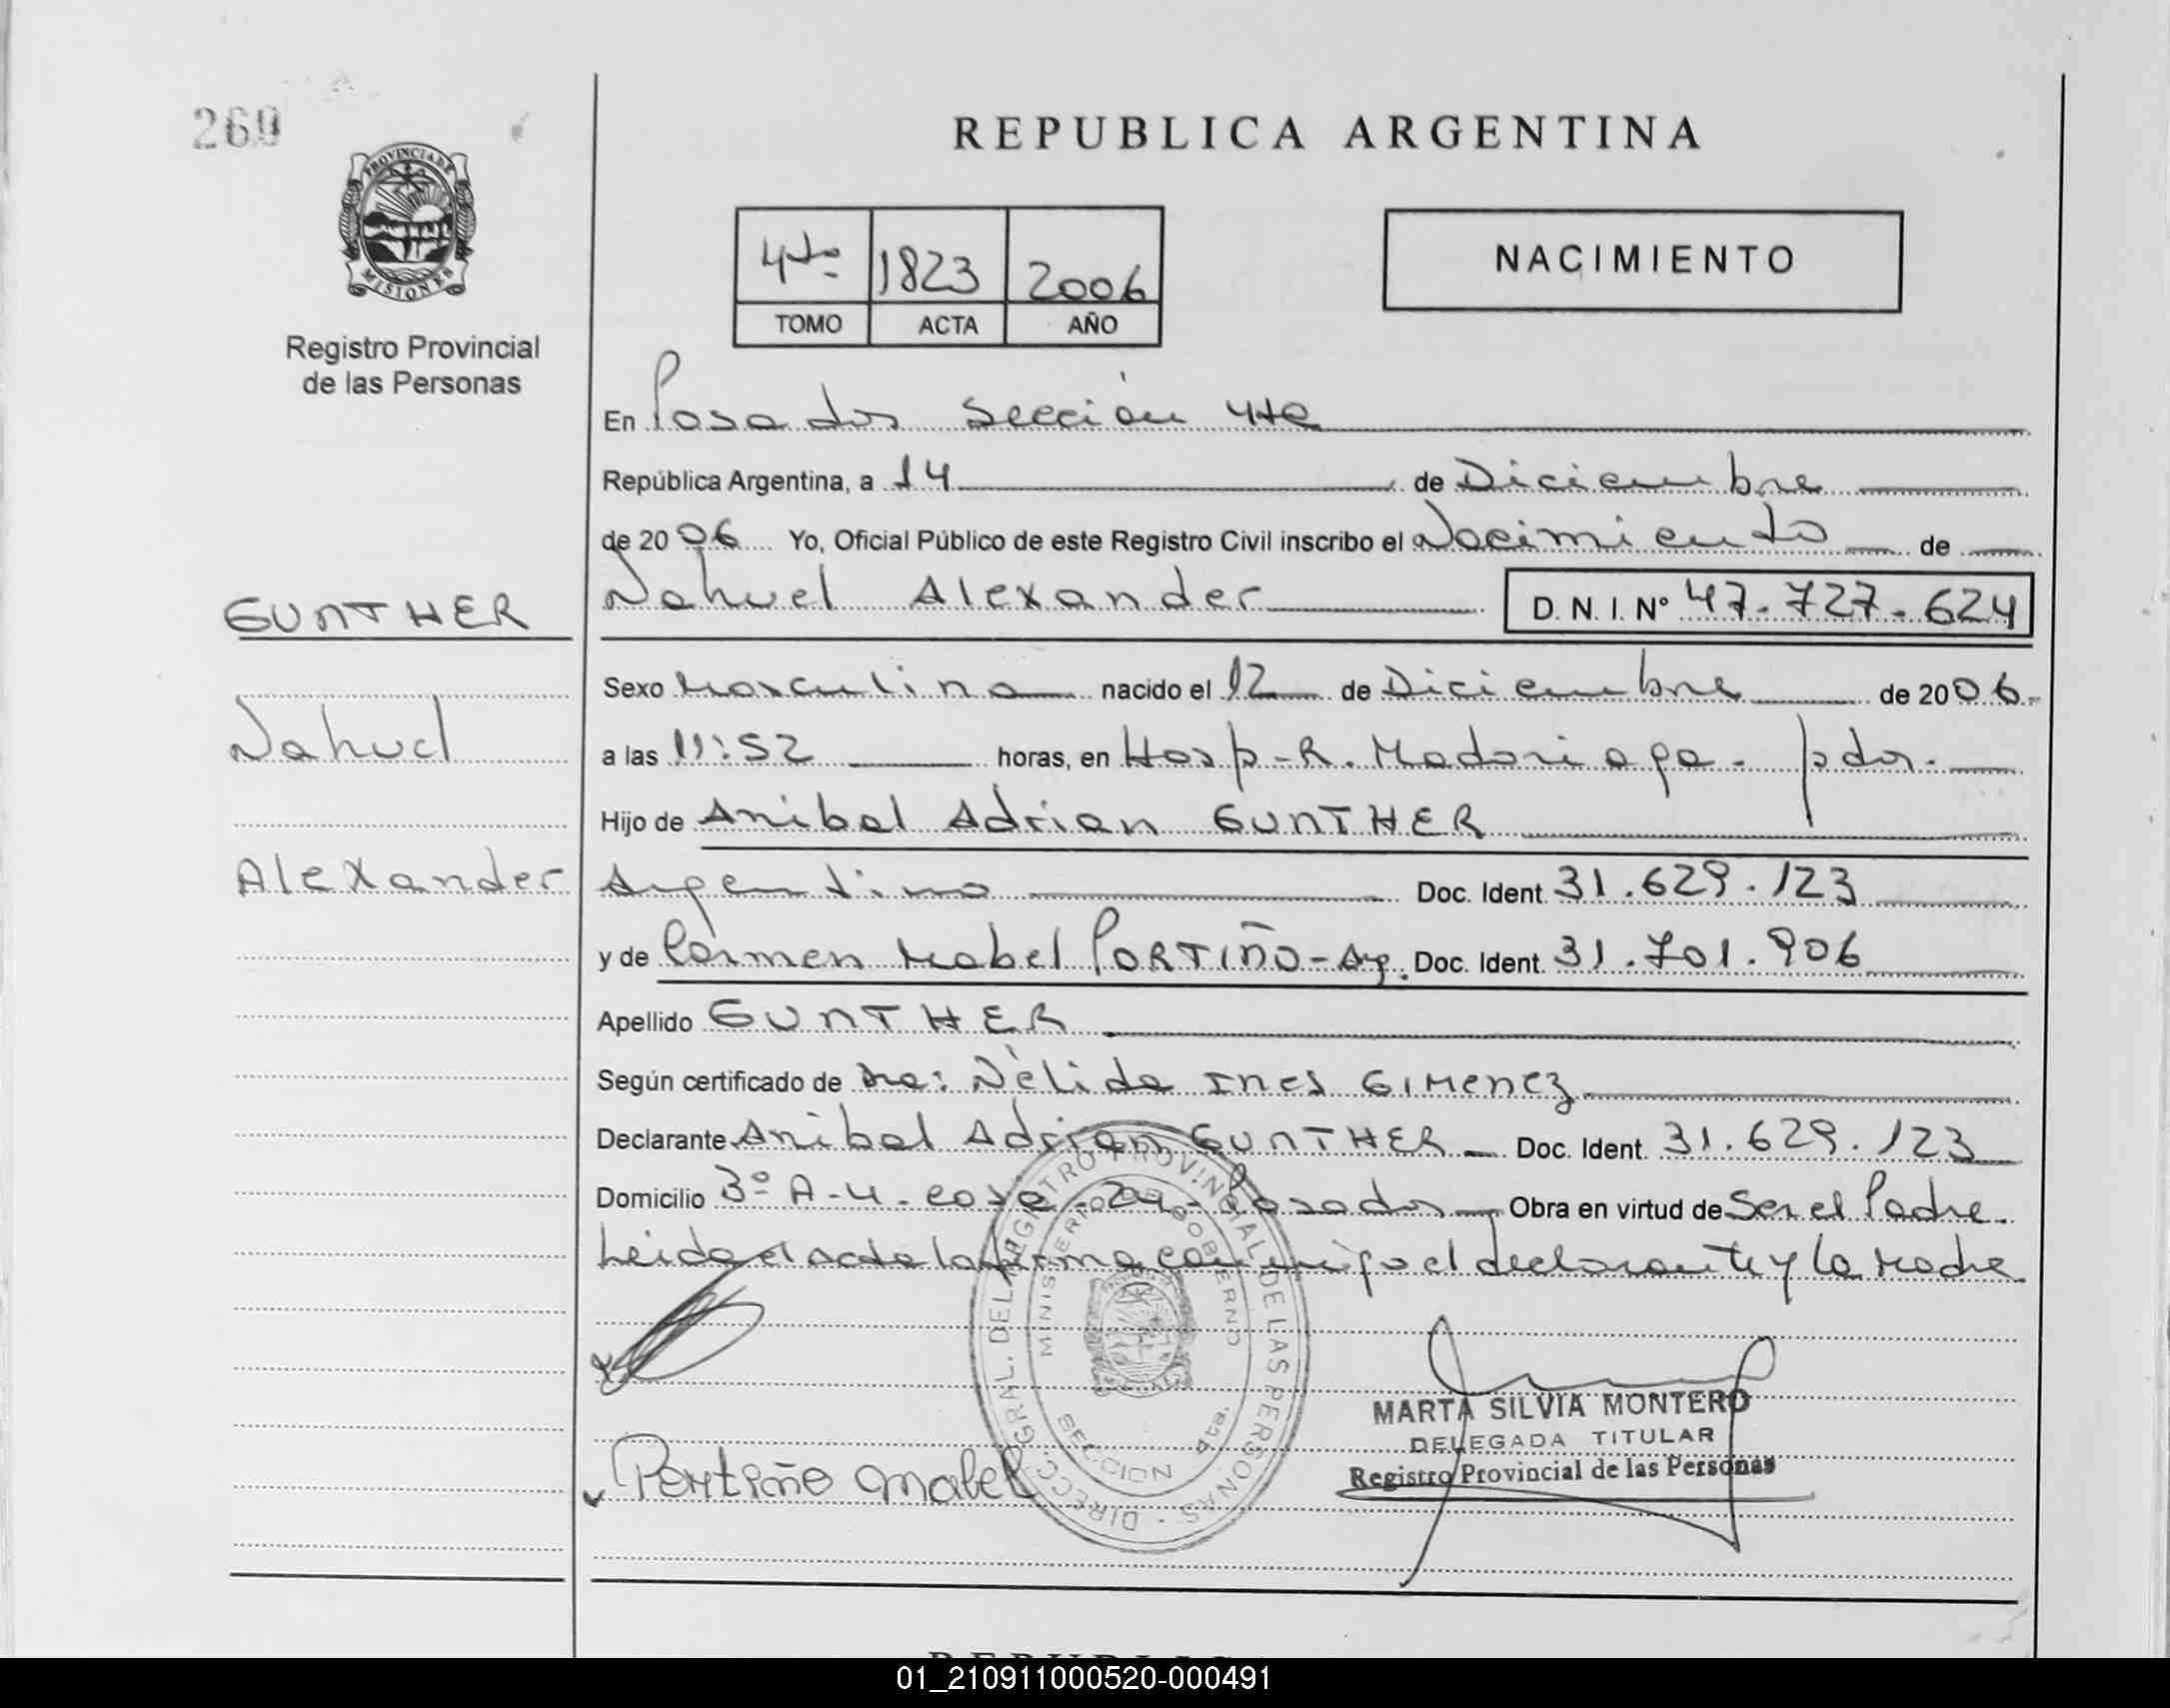 260
PROVINCIA DE
MISIONES
Registro Provincial
de las Personas
REPUBLICA ARGENTINA
4to 1823 2006
TOMO ACTA AÑO
NACIMIENTO
En Posadas Sección 4ta
República Argentina, a 14 de Diciembre
de 2006 Yo, Oficial Público de este Registro Civil inscribo el Nacimiento de
Nahuel Alexander D. N. I. Nº 47.727.624
GUNTHER
Nahuel
Alexander
Sexo Masculino nacido el 12 de Diciembre de 2006.
a las 11:52 horas, en Hosp. R. Madariaga - pdas.
Hijo de Anibal Adrian GUNTHER
Argentino Doc. Ident. 31.629.123
y de Carmen Mabel PORTIÑO - Arg. Doc. Ident. 31.701.906
Apellido GUNTHER
Según certificado de Dra: Nèlida Ines GIMENEZ
Declarante Anibal Adrian GUNTHER Doc. Ident. 31.629.123
Domicilio 3º A-4- casa -24- Posadas Obra en virtud de Ser el Padre.
Leida el acta la firma conmigo el declarante y la Madre
DIRECC. GRAL. DEL REGISTRO PROVINCIAL DE LAS PERSONAS
MINISTERIO DE GOBIERNO
SECCION 4ta.
MARTA SILVIA MONTERO
DELEGADA TITULAR
Registro Provincial de las Personas
Portiño Mabel
01_210911000520-000491